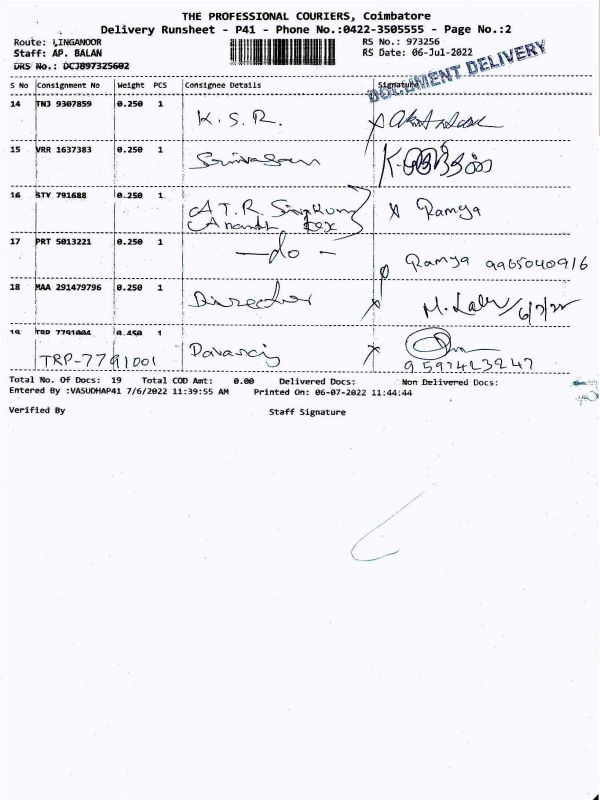 THE PROFESSIONAL COURIERS, Coimbatore
Delivery Runsheet - P41 - Phone No.:0422-3505555 - Page No.:2
Route: LINGANOOR RS No.: 973256
Staff: AP. BALAN RS Date: 06-Jul-2022
DRS No.: DCJ897325602
DOCUMENT DELIVERY
S No Consignment No Weight PCS Consignee Details Signature
14 TNJ 9307859 0.250 1 K. S. R.
15 VRR 1637383 0.250 1 Srinivasan
16 STY 791688 0.250 1 A T. R. x Ramya
Anandh Tex
17 PRT 5013221 0.250 1 -do- Ramya 9965040916
18 MAA 291479796 0.250 1 Director 6/7/22
19 TRP 7791004 0.450 1 Davaraj
TRP-7791001 9597423247
Total No. Of Docs: 19 Total COD Amt: 0.00 Delivered Docs: Non Delivered Docs:
Entered By :VASUDHAP41 7/6/2022 11:39:55 AM Printed On: 06-07-2022 11:44:44
Verified By Staff Signature